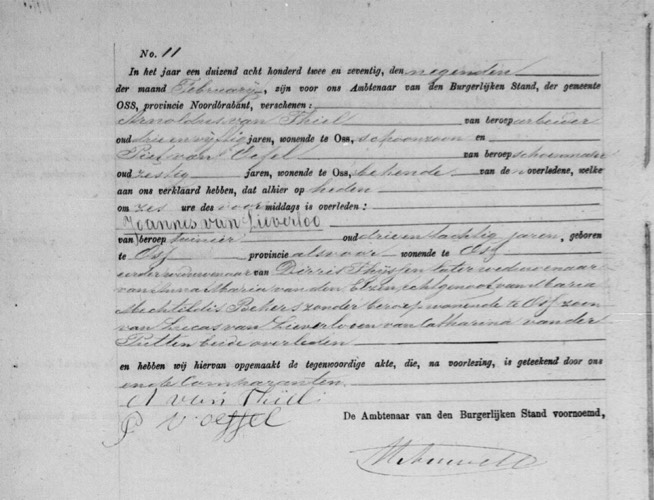 No. 11
In het jaar een duizend acht honderd twee en zeventig, den negenden
der maand Februarij, zijn voor ons Ambtenaar van den Burgerlijken Stand, der gemeente
OSS, provincie Noordbrabant, verschenen:
Arnoldus van Thiel van beroep arbeider
oud drie en vijftig jaren, wonende te Oss, schoonzoon en
Piet van van beroep schoenmaker
oud zestig jaren, wonende te Oss, bekende van de overledene, welke
aan ons verklaard hebben, dat alhier op heden
om zes ure des voormiddags is overleden:
Joannes van Lieverloo
van beroep oud drie en tachtig jaren, geboren
te Oss provincie alsvoor wonende te Oss
eerder weduwnaar van Thijssen later weduwenaar
van Anna Maria van den Elzen, echtgenoot van Maria
Mechteldis zonder beroep wonende te Oss, zoon
van Lucas van Lieverloo en van Catharina van der
Putten beide overleden
en hebben wij hiervan opgemaakt de tegenwoordige akte, die, na voorlezing, is geteekend door ons
en de Comparanten.
A van Thiel
P v
De Ambtenaar van den Burgerlijken Stand voornoemd,